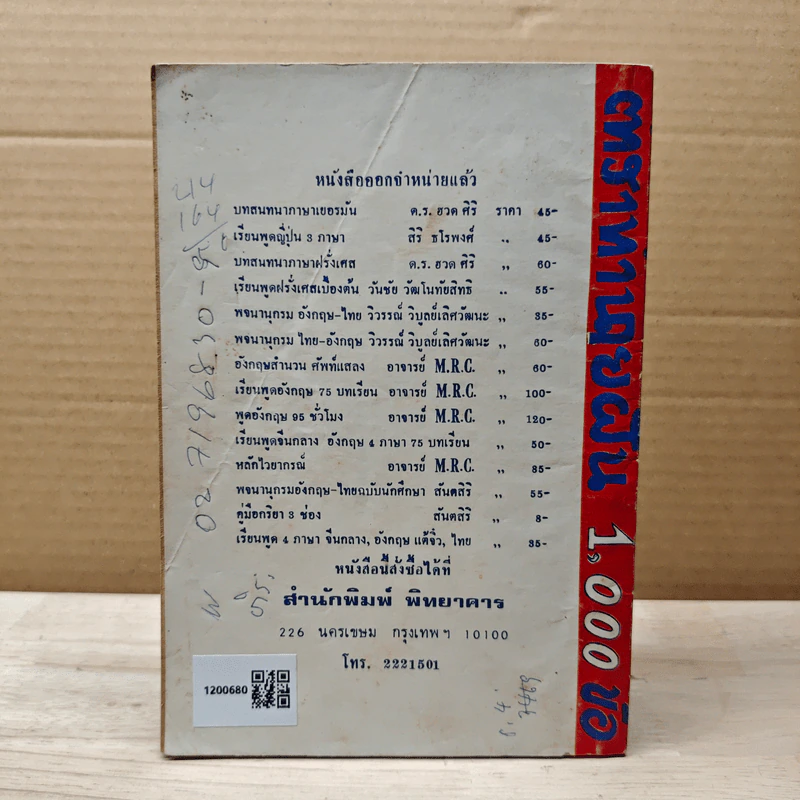 หนังสือออกจำหน่ายแล้ว
บทสนทนาภาษาเยอรมัน ด.ร. ฮวด ศิริ ราคา 45-
เรียนพูดญี่ปุ่น 3 ภาษา สิริ ธโรพงศ์ ,, 45-
บทสนทนาภาษาฝรั่งเศส ด.ร. ฮวด ศิริ ,, 60-
เรียนพูดฝรั่งเศสเบื้องต้น วันชัย วัฒโนทัยสิทธิ ,, 55-
พจนานุกรม อังกฤษ-ไทย วิวรรณ์ วิบูลย์เลิศวัฒนะ ,, 35-
พจนานุกรม ไทย-อังกฤษ วิวรรณ์ วิบูลย์เลิศวัฒนะ ,, 60-
อังกฤษสำนวน ศัพท์แสลง อาจารย์ M.R.C. ,, 60-
เรียนพูดอังกฤษ 75 บทเรียน อาจารย์ M.R.C. ,, 100-
พูดอังกฤษ 95 ชั่วโมง อาจารย์ M.R.C. ,, 120-
เรียนพูดจีนกลาง อังกฤษ 4 ภาษา 75 บทเรียน ,, 50-
หลักไวยากรณ์ อาจารย์ M.R.C. ,, 85-
พจนานุกรมอังกฤษ-ไทยฉบับนักศึกษา สันตสิริ ,, 55-
คู่มือกริยา 3 ช่อง สันตสิริ ,, 8-
เรียนพูด 4 ภาษา จีนกลาง, อังกฤษ แต้จิ๋ว, ไทย ,, 35-
หนังสือนี้สั่งซื้อได้ที่
สำนักพิมพ์ พิทยาคาร
226 นครเขษม กรุงเทพฯ 10100
โทร. 2221501
1200680
ตำราทำนายฝัน 1,000 ข้อ
02 7196830